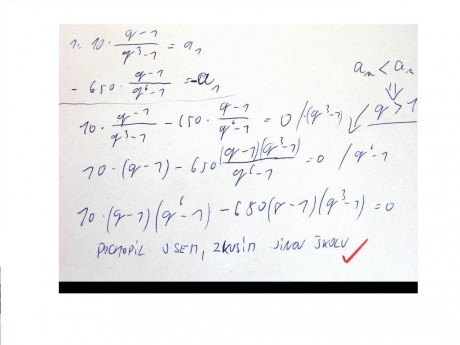 1. 10 · (q-1)/(q³-1) = a₁
- 650 · (q-1)/(q⁶-1) = -a₁
10 · (q-1)/(q³-1) - 650 · (q-1)/(q⁶-1) = 0 /·(q³-1)
q > 1
10 · (q-1) - 650 (q-1)(q³-1)/(q⁶-1) = 0 / q⁶-1
10 · (q-1)(q⁶-1) - 650(q-1)(q³-1) = 0
POCHOPIL JSEM, ZKUSÍM JINOU ŠKOLU